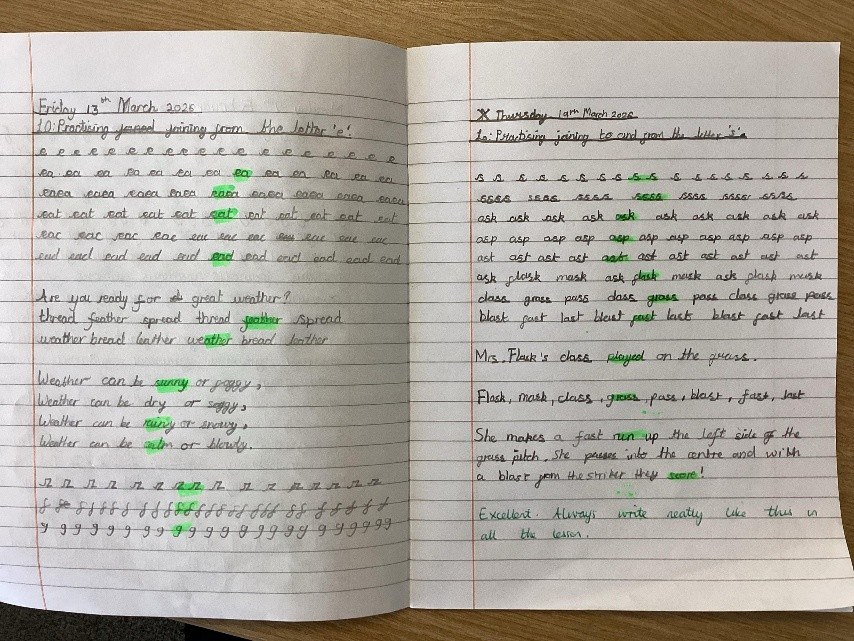 Friday 13th March 2026
LO: Practising joined joining from the letter 'e'.
e e e e e e e e e e e e e e e e e
ea ea ea ea ea ea ea ea ea ea ea ea ea
eaea eaea eaea eaea eaea eaea eaea eaea eaea
eat eat eat eat eat eat eat eat eat eat eat
eac eac eac eac eac eac eac eac eac eac eac
ead ead ead ead ead ead ead ead ead ead ead
Are you ready for great weather?
thread feather spread thread feather spread
weather bread leather weather bread leather
Weather can be sunny or foggy,
Weather can be dry or soggy,
Weather can be rainy or snowy,
Weather can be calm or blowy.
f f f f f f f f f f f f f f f f
g g g g g g g g g g g g g g g g g g
X Thursday 19th March 2026
Lo: Practising joining to and from the letter 's'.
s s s s s s s s s s s s s s s s s
ssss ssss ssss ssss ssss ssss ssss
ask ask ask ask ask ask ask ask ask ask
asp asp asp asp asp asp asp asp asp asp
ast ast ast ast ast ast ast ast ast ast
ask flask mask ask flask mask ask flask mask
class grass pass class grass pass class grass pass
blast fast last blast fast last blast fast last
Mrs. Flask's class played on the grass.
Flask, mask, class, grass, pass, blast, fast, last
She makes a fast run up the left side of the
grass pitch. She passes into the centre and with
a blast from the striker they score!
Excellent. Always write neatly like this in
all the lesson.